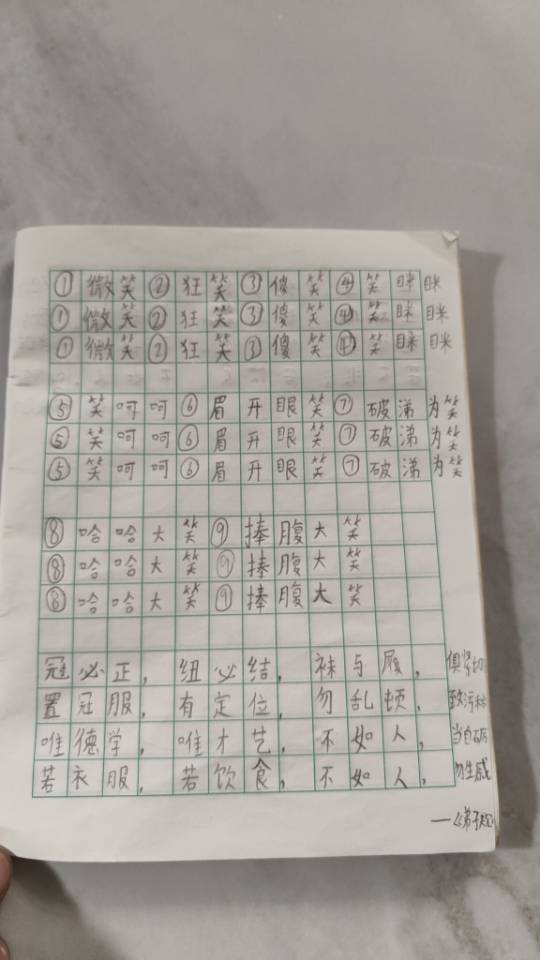 ① 微笑 ② 狂笑 ③ 傻笑 ④ 笑眯眯
① 微笑 ② 狂笑 ③ 傻笑 ④ 笑眯眯
① 微笑 ② 狂笑 ③ 傻笑 ④ 笑眯眯
⑤ 笑呵呵 ⑥ 眉开眼笑 ⑦ 破涕为笑
⑤ 笑呵呵 ⑥ 眉开眼笑 ⑦ 破涕为笑
⑤ 笑呵呵 ⑥ 眉开眼笑 ⑦ 破涕为笑
⑧ 哈哈大笑 ⑨ 捧腹大笑
⑧ 哈哈大笑 ⑨ 捧腹大笑
⑧ 哈哈大笑 ⑨ 捧腹大笑
冠必正，纽必结，袜与履，俱紧切
置冠服，有定位，勿乱顿，致污秽
唯德学，唯才艺，不如人，当自砺
若衣服，若饮食，不如人，勿生戚
——《弟子规》